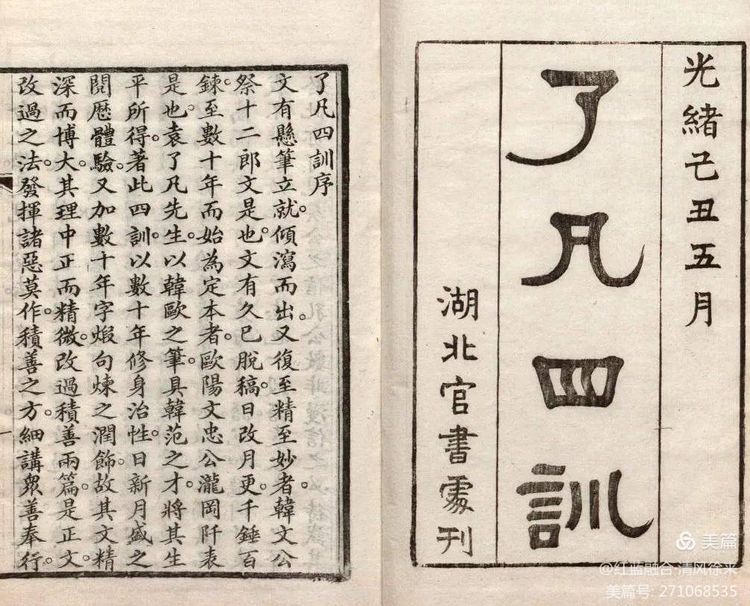 光緒己丑五月
了凡四訓
湖北官書處刊
了凡四訓序
文有懸筆立就。傾瀉而出。又復至精至妙者。韓文公
祭十二郎文是也。文有久已脫稿。日改月更。千錘百
鍊。至數十年而始為定本者。歐陽文忠公瀧岡阡表
是也。袁了凡先生。以韓歐之筆。具韓范之才。將其生
平所得。著此四訓。以數十年修身治性。日新月盛之
閱歷體驗。又加數十年字煅句煉之潤飾。故其文精
深而博大。其理中正而精微。改過積善兩篇。是正文。
改過之法。發揮諸惡莫作。積善之方。細講衆善奉行。
美篇
@红蓝融合 清风徐来
美篇号: 271068535